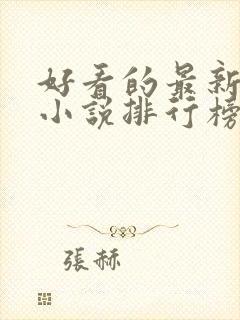 好看的最新
小说排行榜
張赫